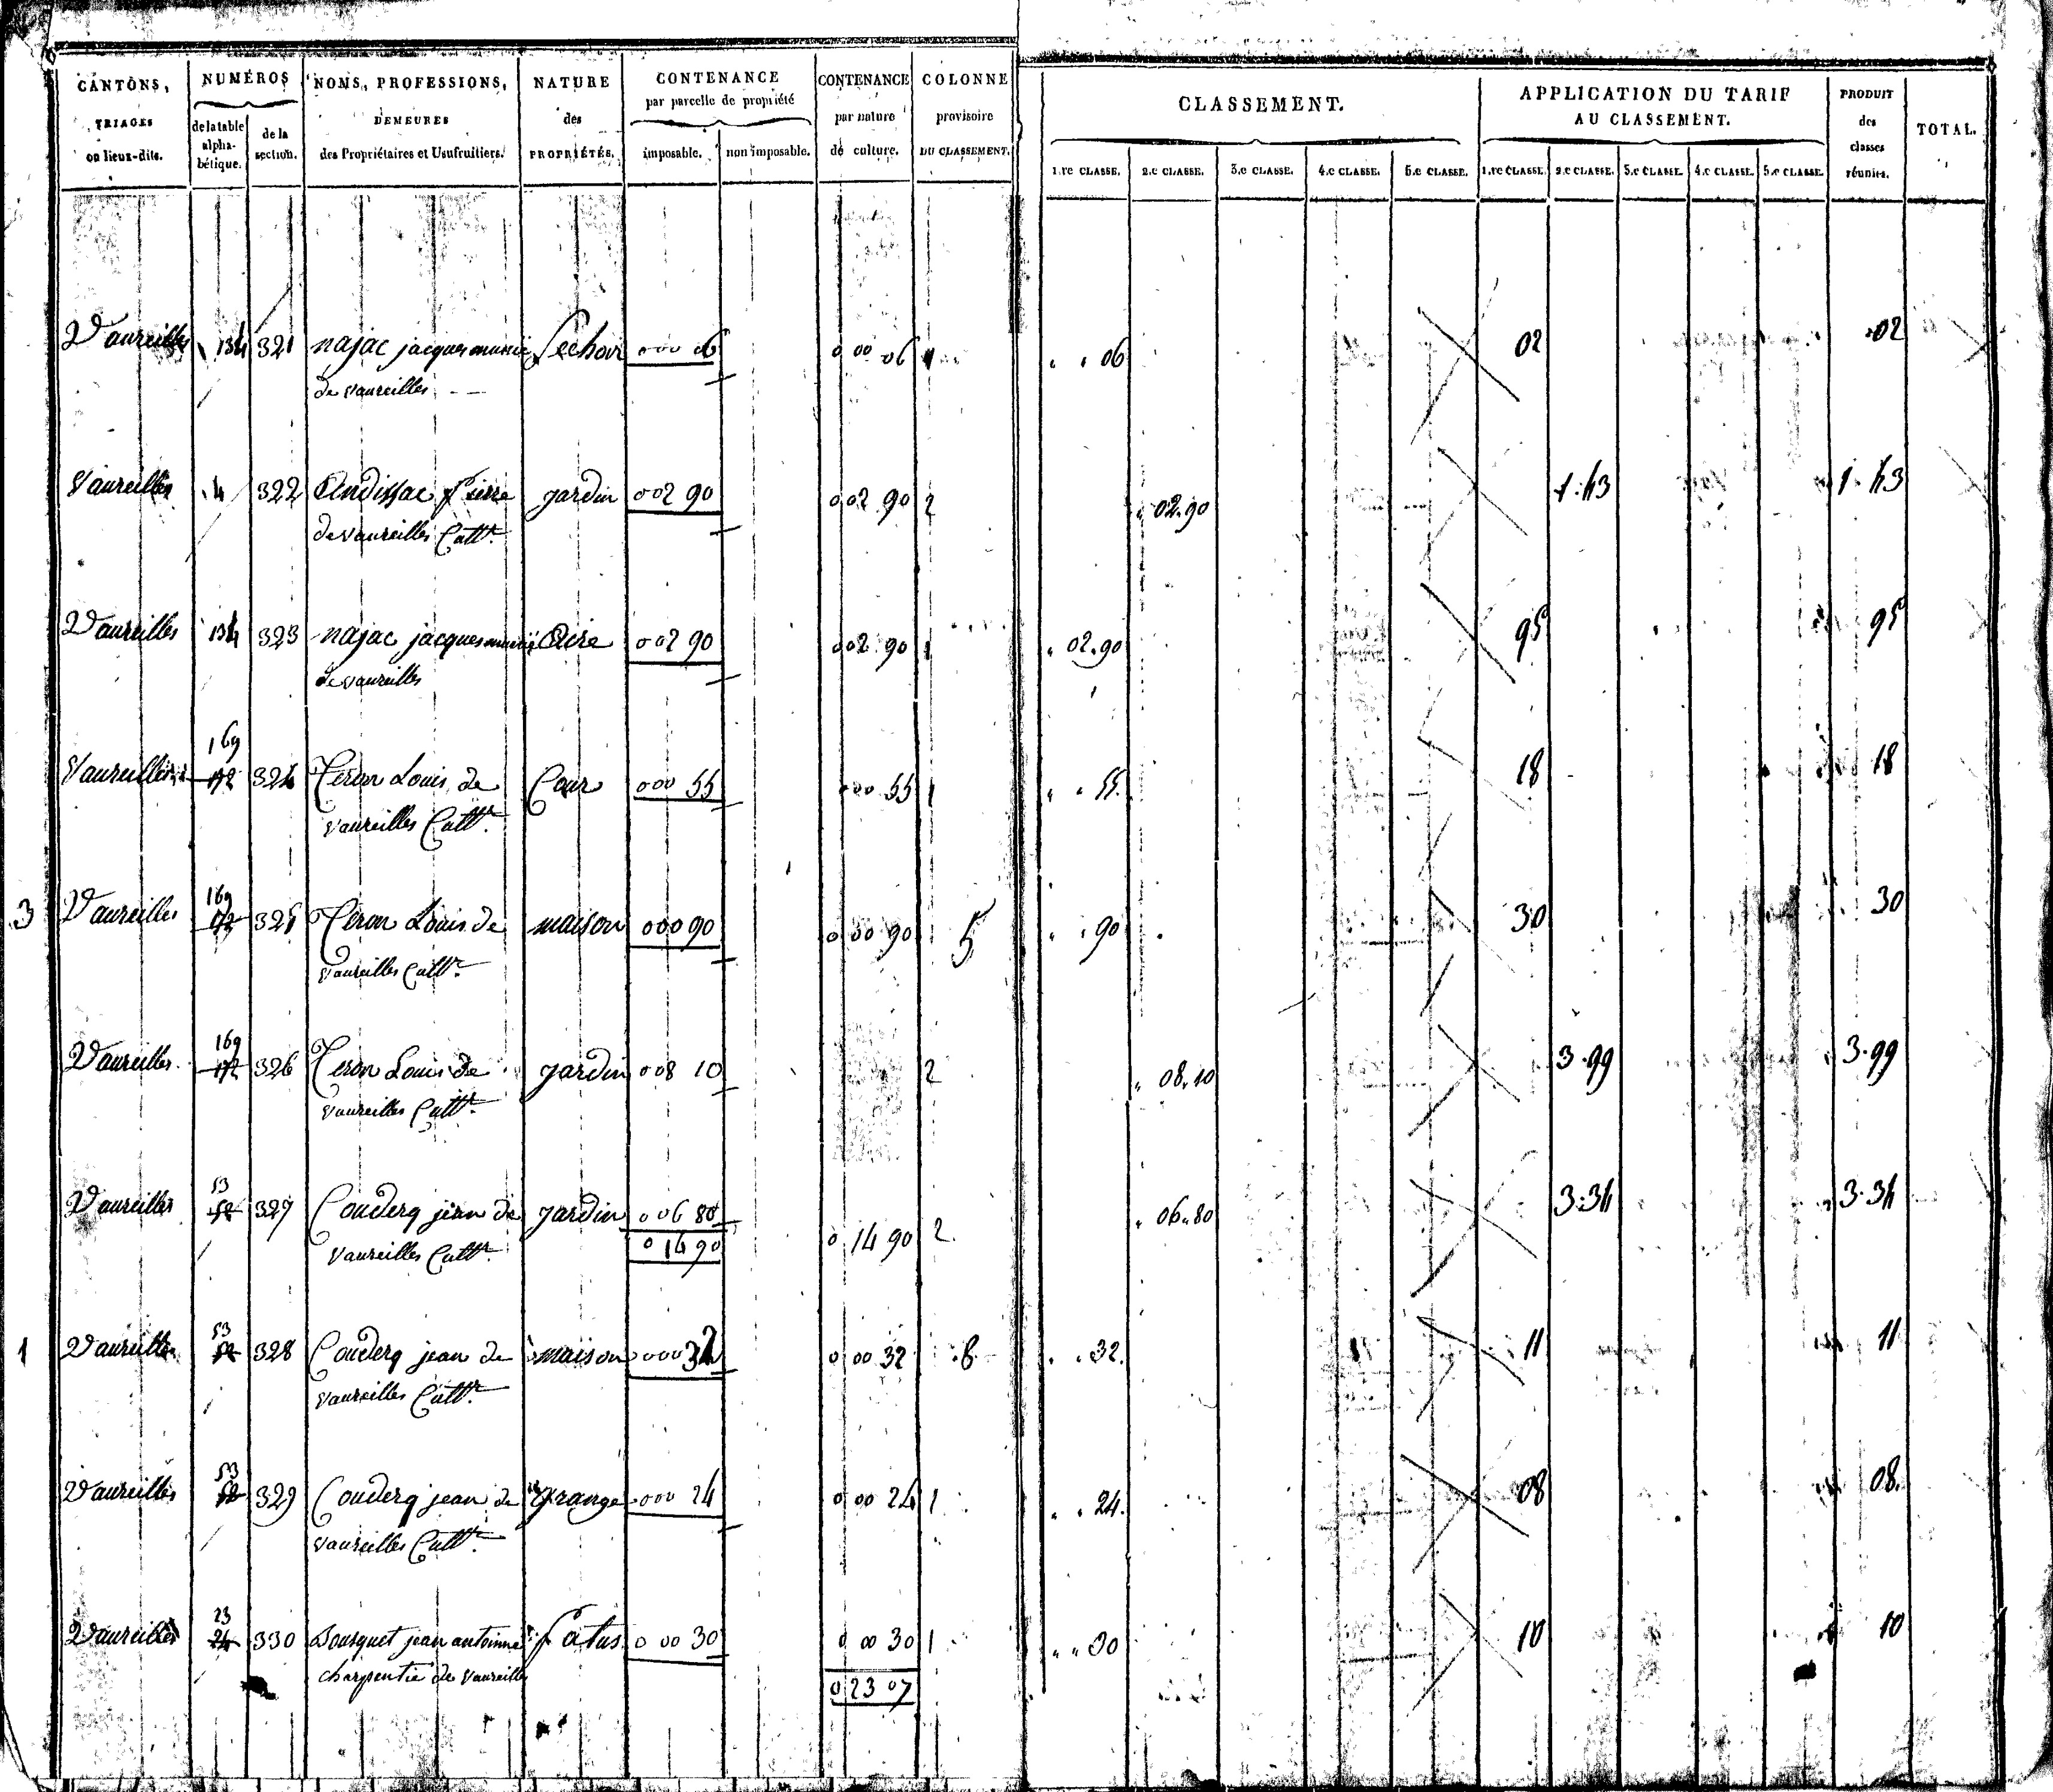 CANTONS, NUMÉROS NOMS, PROFESSIONS, NATURE CONTENANCE CONTENANCE COLONNE CLASSEMENT. APPLICATION DU TARIF PRODUIT
TRIAGES DEMEURES des par parcelle de propriété par nature provisoire AU CLASSEMENT. des TOTAL.
ou lieux-dits. de la table alphabétique. de la section. des Propriétaires et Usufruitiers. PROPRIÉTÉS. imposable. non imposable. de culture. DU CLASSEMENT. 1.re CLASSE. 2.e CLASSE. 3.e CLASSE. 4.e CLASSE. 5.e CLASSE. 1.re CLASSE. 2.e CLASSE. 3.e CLASSE. 4.e CLASSE. 5.e CLASSE. classes réunies.
Vaureilles 134 321 najac jacques Sechoir 000 06 0 00 06 1 " " 06 02 02
de vaureilles
Vaureilles 4 322 Andissac pierre jardin 002 90 002 90 2 " 02.90 1.43 1.43
de vaureilles Cultr.
Vaureilles 134 323 najac jacques Aire 002 90 002 90 1 " 02.90 95 95
de vaureilles
169
Vaureilles 172 324 Teron Louis de Cour 000 55 000 55 1 " " 55. 18 18
vaureilles Cultr.
169
3 Vaureilles 172 325 Teron Louis de maison 000 90 0 00 90 5 " " 90 30 30
vaureilles Cultr.
169
Vaureilles 172 326 Teron Louis de jardin 008 10 2 " 08.10 3.99 3.99
vaureilles Cultr.
53
Vaureilles 52 327 Couderq jean de jardin 006 80 2 " 06.80 3.34 3.34
vaureilles Cultr. 0 14 90 0 14 90
53
1 Vaureilles 52 328 Couderq jean de maison 000 32 0 00 32 8 " " 32. 11 11
vaureilles Cultr.
53
Vaureilles 52 329 Couderq jean de grange 000 24 0 00 24 1 " " 24. 08 08.
vaureilles Cultr.
23
Vaureilles 24 330 Bousquet jean antoinne patus 0 00 30 0 00 30 1 " " 30 10 10
charpentie de Vaureilles
0 23 07